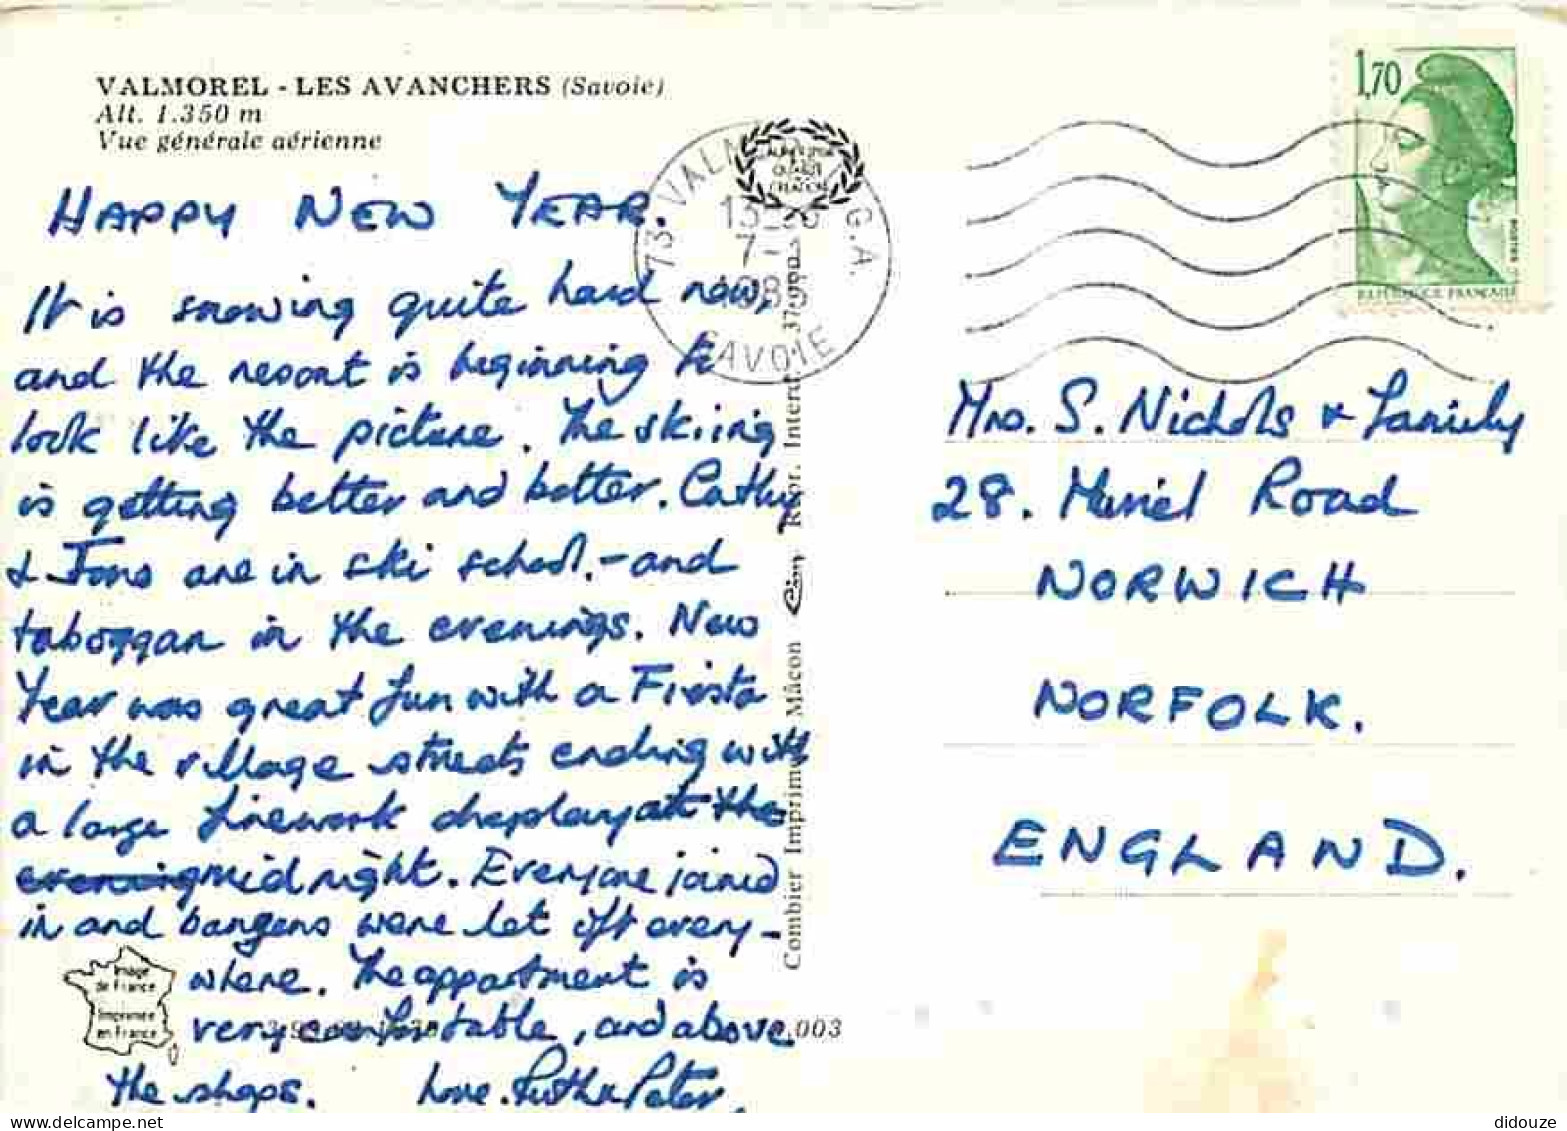 VALMOREL - LES AVANCHERS (Savoie)
Alt. 1.350 m
Vue générale aérienne
HAPPY NEW YEAR.
It is snowing quite hard now,
and the resort is beginning to
look like the picture. The skiing
is getting better and better. Cathy
& Jono are in ski school. - and
toboggan in the evenings. New
Year was great fun with a Fiesta
in the village streets ending with
a large firework display at the
evening midnight. Everyone joined
in and bangers were let off every-
where. The appartment is
very comfortable, and above
the shops. Love. Ruth & Peter.
Image
de France
Imprimée
en France
003
Combier Imprimeur Mâcon
73 VALMOREL
G.A.
7-1
SAVOIE
1,70
POSTES
REPUBLIQUE FRANÇAISE
Mrs. S. Nichols & Family
28. Muriel Road
NORWICH
NORFOLK.
ENGLAND.
didouze